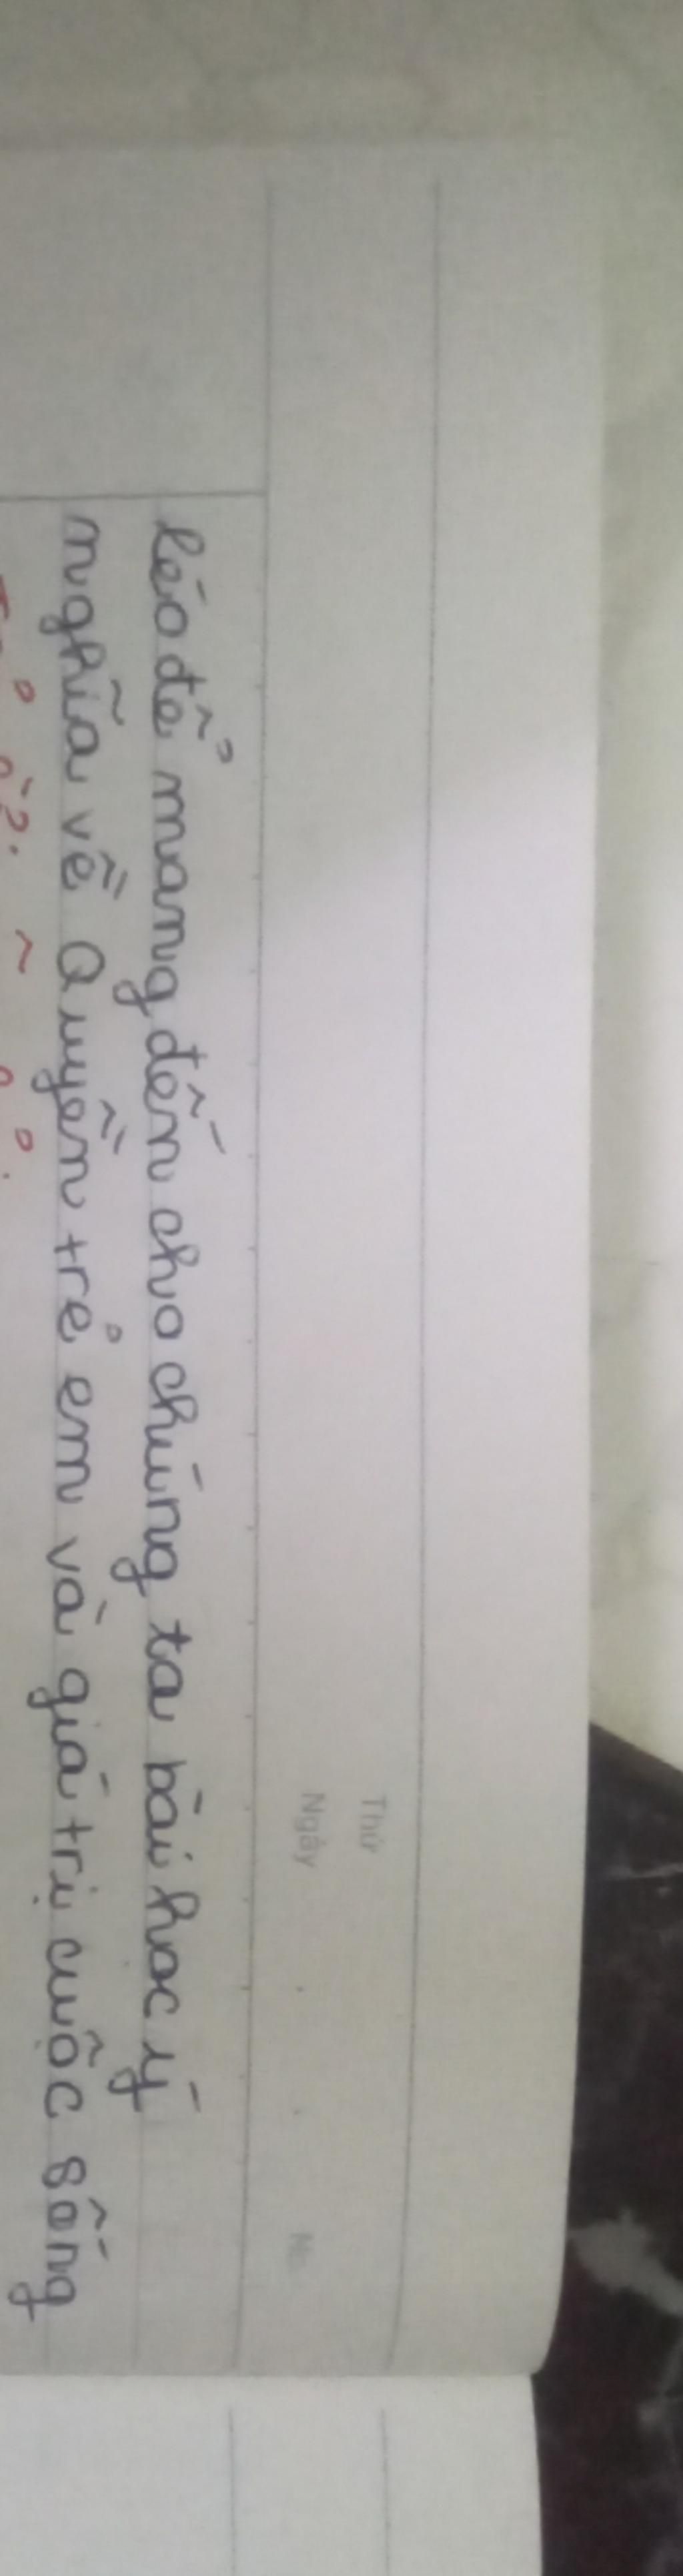 Thứ
Ngày
No.
léo để mang đến cho chúng ta bài học ý
nghĩa về Quyền trẻ em và giá trị cuộc sống